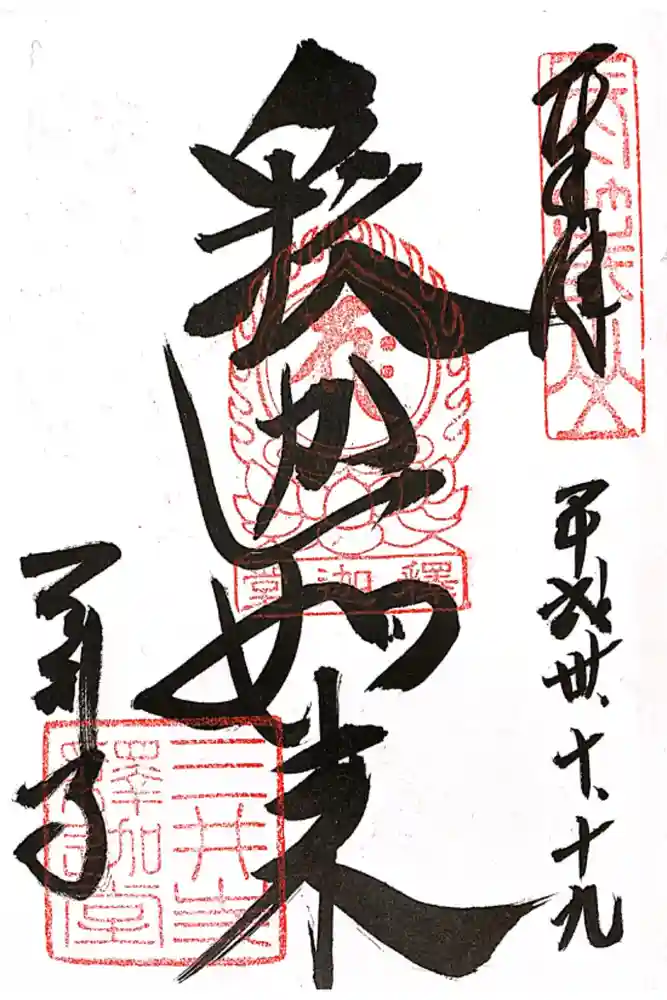 奉拝
平成卅、十、十九
釈迦如来
釋迦堂
三井寺
釋迦堂